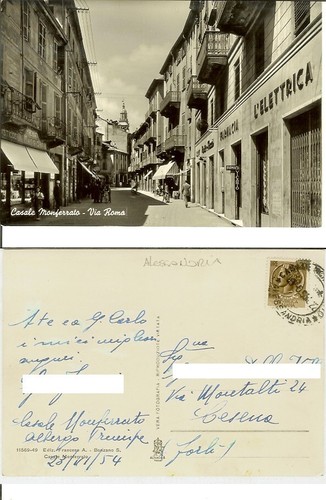 L'ELETTRICA
FARMACIA
Casale Monferrato - Via Roma
ALESSANDRIA
A te ea G. Carlo
i miei migliori
auguri
Casale Monferrato
albergo Principe
23/VI/54
Sig.na
Via Montalti 24
Cesena
(Forlì)
VERA FOTOGRAFIA
11559-49 Ediz. Francone A. - Bussano S.
Casale Monferrato